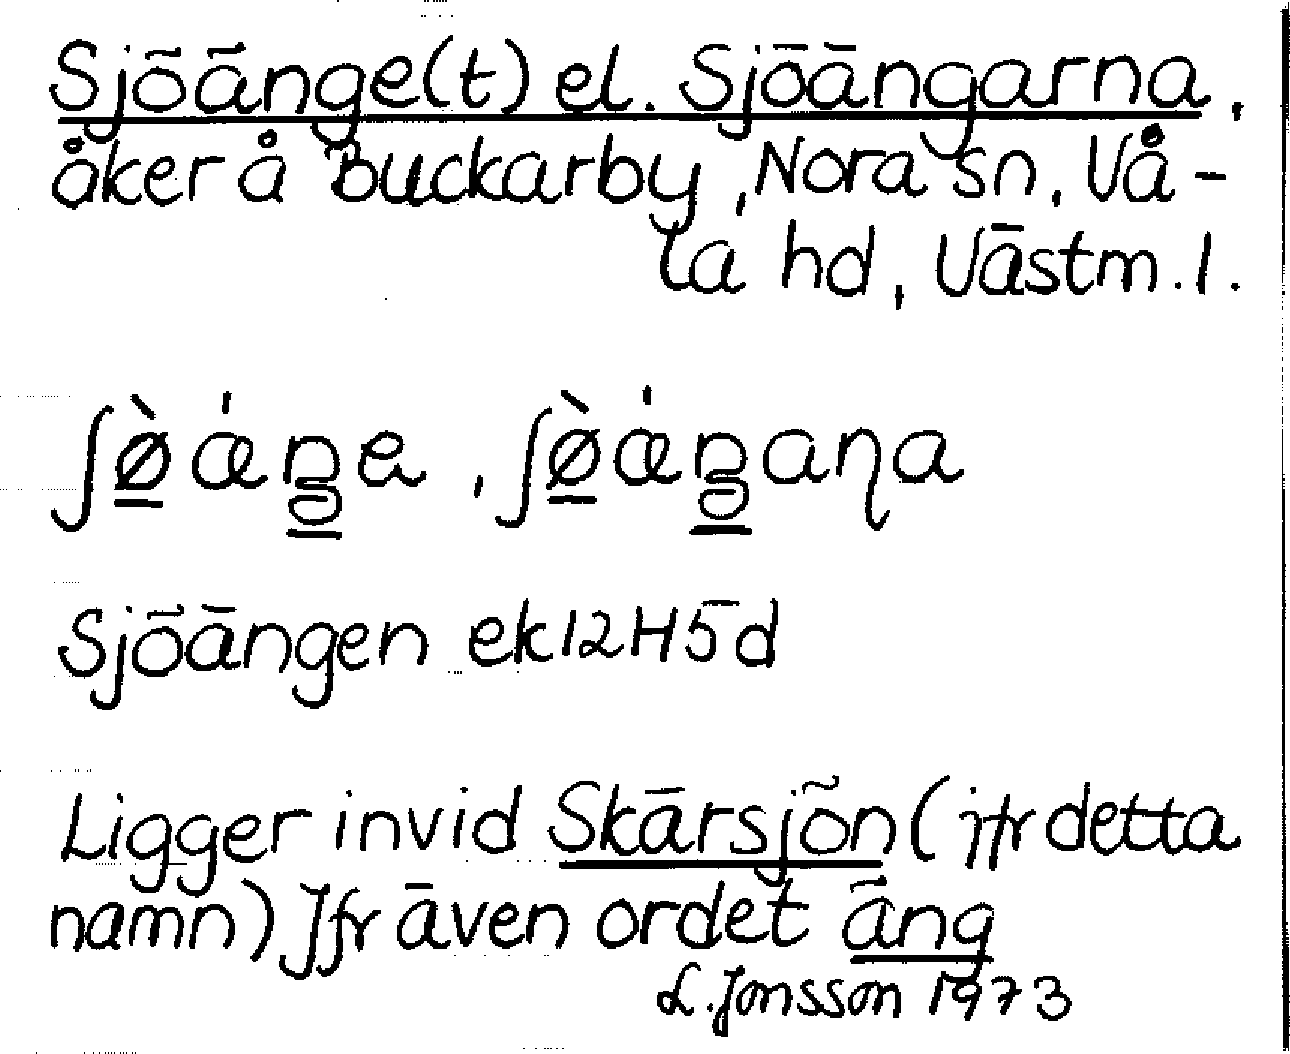 Sjöänge(t) el. Sjöängarna,
åker å Buckarby, Nora sn, Vå-
la hd, Västm. l.
ʃø̲̀ ǽŋ̲e, ʃø̲̀ ǽŋ̲aɳa
Sjöängen ek 12H5d
Ligger invid Skärsjön (jfr detta
namn) Jfr även ordet äng
L. Jonsson 1973